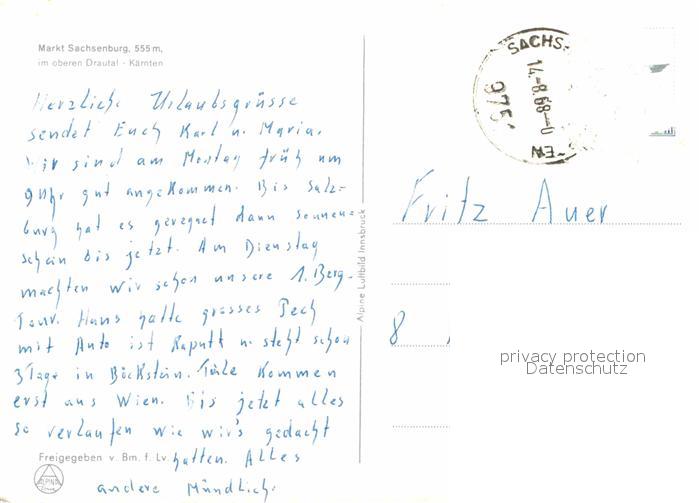 Markt Sachsenburg, 555 m,
im oberen Drautal - Kärnten
Herzliche Urlaubsgrüsse
sendet Euch Karl u. Maria.
Wir sind am Montag früh um
9 Uhr gut angekommen. Bis Salz=
burg hat es geregnet dann sonnen=
schein bis jetzt. Am Dienstag
machten wir schon unsere 1. Berg-
Tour. Hans hatte grosses Pech
mit Auto ist Kaputt u. steht schon
3 Tage in Böckstein. Teile Kommen
erst aus Wien. Bis jetzt alles
so verlaufen wie wir's gedacht
Freigegeben v. Bm. f. Lv. hatten. Alles
andere Mündlich.
ALPINE
Alpine Luftbild Innsbruck
SACHS-
14.-8.68--0
975
EN
Fritz Auer
8
privacy protection
Datenschutz